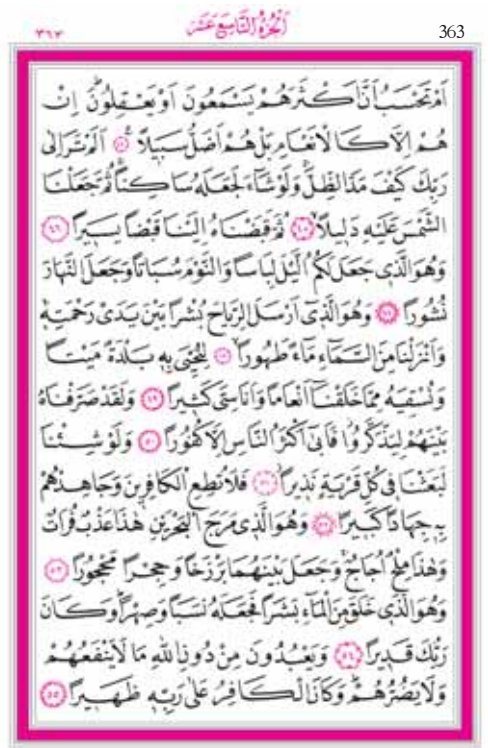 ٣٦٣ اَلْجُزْءُ التَّاسِعَ عَشَرَ 363
اَمْ تَحْسَبُ اَنَّ اَكْثَرَهُمْ يَسْمَعُونَ اَوْ يَعْقِلُونَۜ اِنْ
هُمْ اِلَّا كَالْاَنْعَامِ بَلْ هُمْ اَضَلُّ سَبِيلًا۟ ﴿٤٤﴾ اَلَمْ تَرَ اِلٰى
رَبِّكَ كَيْفَ مَدَّ الظِّلَّۚ وَلَوْ شَٓاءَ لَجَعَلَهُ سَاكِنًاۚ ثُمَّ جَعَلْنَا
الشَّمْسَ عَلَيْهِ دَلِيلًاۙ ﴿٤٥﴾ ثُمَّ قَبَضْنَاهُ اِلَيْنَا قَبْضًا يَسِيرًا ﴿٤٦﴾
وَهُوَ الَّذِي جَعَلَ لَكُمُ الَّيْلَ لِبَاسًا وَالنَّوْمَ سُبَاتًا وَجَعَلَ النَّهَارَ
نُشُورًا ﴿٤٧﴾ وَهُوَ الَّذِٓي اَرْسَلَ الرِّيَاحَ بُشْرًا بَيْنَ يَدَيْ رَحْمَتِهِۚ
وَاَنْزَلْنَا مِنَ السَّمَٓاءِ مَٓاءً طَهُورًاۙ ﴿٤٨﴾ لِنُحْيِيَ بِهِ بَلْدَةً مَيْتًا
وَنُسْقِيَهُ مِمَّا خَلَقْنَٓا اَنْعَامًا وَاَنَاسِيَّ كَثِيرًا ﴿٤٩﴾ وَلَقَدْ صَرَّفْنَاهُ
بَيْنَهُمْ لِيَذَّكَّرُواۘ فَاَبٰٓى اَكْثَرُ النَّاسِ اِلَّا كُفُورًا ﴿٥٠﴾ وَلَوْ شِئْنَا
لَبَعَثْنَا فِي كُلِّ قَرْيَةٍ نَذِيرًاۘ ﴿٥١﴾ فَلَا تُطِعِ الْكَافِرِينَ وَجَاهِدْهُمْ
بِهِ جِهَادًا كَبِيرًا ﴿٥٢﴾ وَهُوَ الَّذِي مَرَجَ الْبَحْرَيْنِ هٰذَا عَذْبٌ فُرَاتٌ
وَهٰذَا مِلْحٌ اُجَاجٌۚ وَجَعَلَ بَيْنَهُمَا بَرْزَخًا وَحِجْرًا مَحْجُورًا ﴿٥٣﴾
وَهُوَ الَّذِي خَلَقَ مِنَ الْمَٓاءِ بَشَرًا فَجَعَلَهُ نَسَبًا وَصِهْرًاۜ وَكَانَ
رَبُّكَ قَدِيرًا ﴿٥٤﴾ وَيَعْبُدُونَ مِنْ دُونِ اللّٰهِ مَا لَا يَنْفَعُهُمْ
وَلَا يَضُرُّهُمْۜ وَكَانَ الْكَافِرُ عَلٰى رَبِّهِ ظَهِيرًا ﴿٥٥﴾